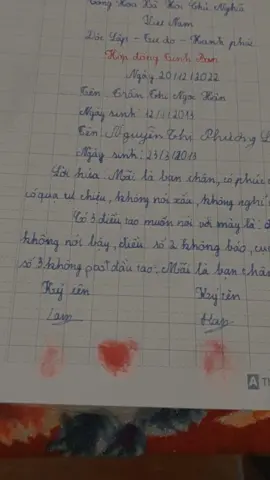 Cộng Hòa Xã Hội Chủ Nghĩa
Việt Nam
Độc Lập - Tự do - Hạnh phúc
Hợp đồng Bạn
Ngày 20/12/2022
Tên: Trần Thị Ngọc Hân
Ngày sinh: 12/1/2013
Tên: Nguyễn Thị Phương
Ngày sinh: 23/3/2013
Lời hứa: Mãi là bạn thân, có phúc
có qua tự chiều, không nói xấu, không nghỉ
Có 3 điều tao muốn nói với mày là:
không nói bậy, điều số 2 không báo,
số 3 không đầu tao. Mãi là bạn thân
Ký tên
Ký tên
Lam
Han
A